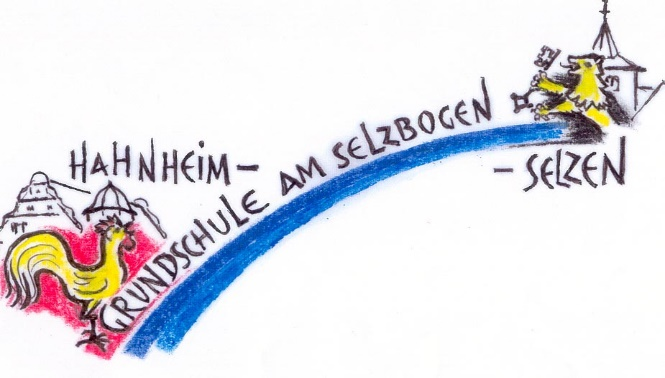 HAHNHEIM-
GRUNDSCHULE AM SELZBOGEN
-SELZEN